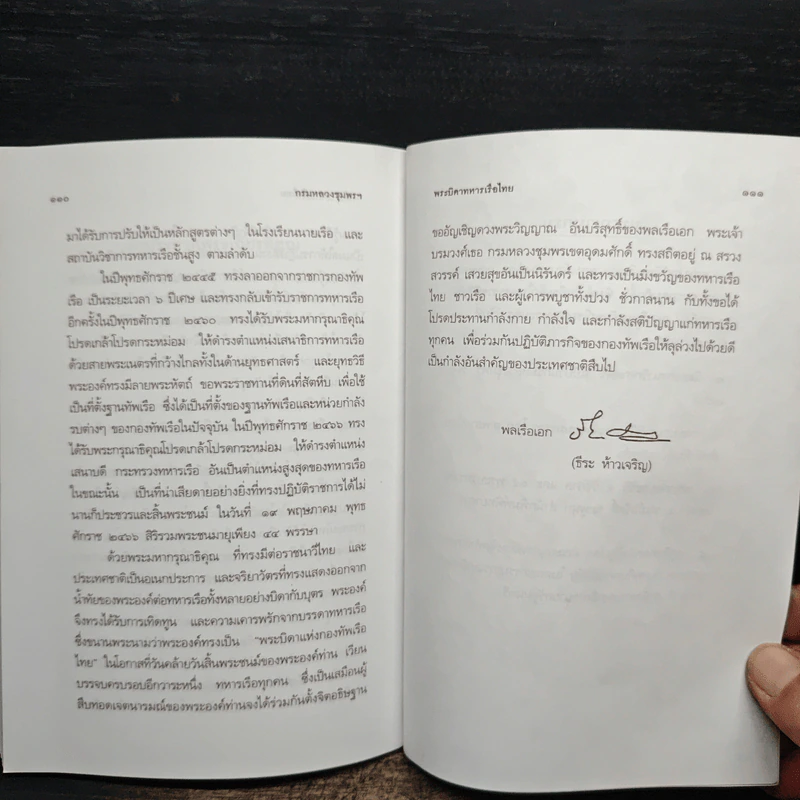 ๑๑๐
กรมหลวงชุมพรฯ
มาได้รับการปรับให้เป็นหลักสูตรต่างๆ ในโรงเรียนนายเรือ และ
สถาบันวิชาการทหารเรือชั้นสูง ตามลำดับ
ในปีพุทธศักราช ๒๔๔๕ ทรงลาออกจากราชการกองทัพ
เรือ เป็นระยะเวลา ๖ ปีเศษ และทรงกลับเข้ารับราชการทหารเรือ
อีกครั้งในปีพุทธศักราช ๒๔๖๐ ทรงได้รับพระมหากรุณาธิคุณ
โปรดเกล้าโปรดกระหม่อม ให้ดำรงตำแหน่งเสนาธิการทหารเรือ
ด้วยสายพระเนตรที่กว้างไกลทั้งในด้านยุทธศาสตร์ และยุทธวิธี
พระองค์ทรงมีลายพระหัตถ์ ขอพระราชทานที่ดินที่สัตหีบ เพื่อใช้
เป็นที่ตั้งฐานทัพเรือ ซึ่งได้เป็นที่ตั้งของฐานทัพเรือและหน่วยกำลัง
รบต่างๆ ของกองทัพเรือในปัจจุบัน ในปีพุทธศักราช ๒๔๖๖ ทรง
ได้รับพระกรุณาธิคุณโปรดเกล้าโปรดกระหม่อม ให้ดำรงตำแหน่ง
เสนาบดี กระทรวงทหารเรือ อันเป็นตำแหน่งสูงสุดของทหารเรือ
ในขณะนั้น เป็นที่น่าเสียดายอย่างยิ่งที่ทรงปฏิบัติราชการได้ไม่
นานก็ประชวรและสิ้นพระชนม์ ในวันที่ ๑๙ พฤษภาคม พุทธ
ศักราช ๒๔๖๖ สิริรวมพระชนมายุเพียง ๔๔ พรรษา
ด้วยพระมหากรุณาธิคุณ ที่ทรงมีต่อราชนาวีไทย และ
ประเทศชาติเป็นอเนกประการ และจริยาวัตรที่ทรงแสดงออกจาก
น้ำทัยของพระองค์ต่อทหารเรือทั้งหลายอย่างบิดากับบุตร พระองค์
จึงทรงได้รับการเทิดทูน และความเคารพรักจากบรรดาทหารเรือ
ซึ่งขนานพระนามว่าพระองค์ทรงเป็น "พระบิดาแห่งกองทัพเรือ
ไทย" ในโอกาสที่วันคล้ายวันสิ้นพระชนม์ของพระองค์ท่าน เวียน
บรรจบครบรอบอีกวาระหนึ่ง ทหารเรือทุกคน ซึ่งเป็นเสมือนผู้
สืบทอดเจตนารมณ์ของพระองค์ท่านจงได้ร่วมกันตั้งจิตอธิษฐาน
พระบิดาทหารเรือไทย
๑๑๑
ขออัญเชิญดวงพระวิญญาณ อันบริสุทธิ์ของพลเรือเอก พระเจ้า
บรมวงศ์เธอ กรมหลวงชุมพรเขตอุดมศักดิ์ ทรงสถิตอยู่ ณ สรวง
สวรรค์ เสวยสุขอันเป็นนิรันดร์ และทรงเป็นมิ่งขวัญของทหารเรือ
ไทย ชาวเรือ และผู้เคารพบูชาทั้งปวง ชั่วกาลนาน กับทั้งขอได้
โปรดประทานกำลังกาย กำลังใจ และกำลังสติปัญญาแก่ทหารเรือ
ทุกคน เพื่อร่วมกันปฏิบัติภารกิจของกองทัพเรือให้ลุล่วงไปด้วยดี
เป็นกำลังอันสำคัญของประเทศชาติสืบไป
พลเรือเอก
(ธีระ ห้าวเจริญ)